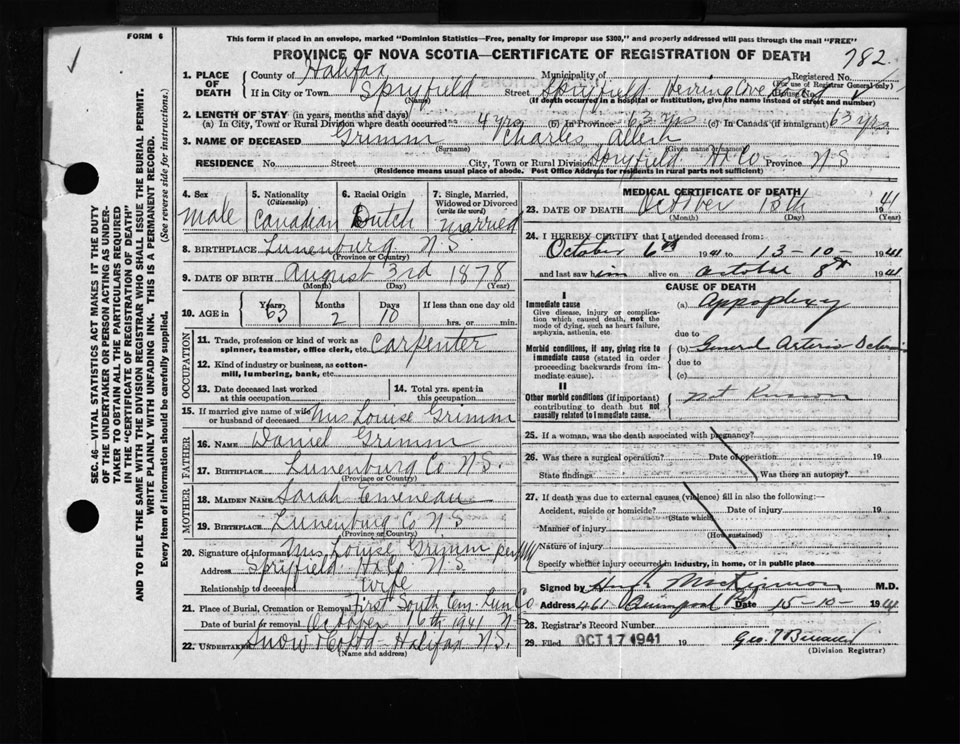 FORM 6
This form if placed in an envelope, marked "Dominion Statistics—Free, penalty for improper use $300," and properly addressed will pass through the mail "FREE"
PROVINCE OF NOVA SCOTIA—CERTIFICATE OF REGISTRATION OF DEATH
782
1. PLACE OF DEATH
County of Halifax Municipality of Registered No.
(For use of Registrar General only)
If in City or Town Spryfield Street Spryfield Herring Cove Road House No.
(Name) (If death occurred in a hospital or institution, give the name instead of street and number)
2. LENGTH OF STAY (in years, months and days)
(a) In City, Town or Rural Division where death occurred 4 yrs (b) In Province 63 yrs (c) In Canada (if immigrant) 63 yrs
3. NAME OF DECEASED Grimm Charles Allen
(Surname) (Given name or names)
RESIDENCE No. Street City, Town or Rural Division Spryfield Hx Co Province N S
(Residence means usual place of abode. Post Office Address for residents in rural parts not sufficient)
4. Sex
male
5. Nationality
(Citizenship)
Canadian
6. Racial Origin
Dutch
7. Single, Married, Widowed or Divorced
(write the word)
Married
8. BIRTHPLACE Lunenburg N.S.
(Province or Country)
9. DATE OF BIRTH August 3rd 1878
(Month) (Day) (Year)
10. AGE
Years Months Days If less than one day old
63 2 10 hrs. or min.
OCCUPATION
11. Trade, profession or kind of work as spinner, teamster, office clerk, etc. Carpenter
12. Kind of industry or business, as cotton-mill, lumbering, bank, etc.
13. Date deceased last worked at this occupation
14. Total yrs. spent in this occupation
15. If married give name of wife or husband of deceased Mrs Louise Grimm
FATHER
16. NAME Daniel Grimm
17. BIRTHPLACE Lunenburg Co N.S.
(Province or Country)
MOTHER
18. MAIDEN NAME Sarah Emeneau
19. BIRTHPLACE Lunenburg Co N S
(Province or Country)
20. Signature of informant Mrs Louise Grimm per
Address Spryfield Hx Co N.S.
Relationship to deceased Wife
21. Place of Burial, Cremation or Removal First South Cem. Lun Co.
Date of burial or removal October 16th 1941 N S
22. UNDERTAKER Snow Halifax N.S.
(Name and address)
MEDICAL CERTIFICATE OF DEATH
23. DATE OF DEATH October 13th 1941
(Month) (Day) (Year)
24. I HEREBY CERTIFY that I attended deceased from:
October 6th 1941 to 13-10- 1941
and last saw him alive on October 8th 1941
CAUSE OF DEATH
I
Immediate cause
Give disease, injury or complication which caused death, not the mode of dying, such as heart failure, asphyxia, asthenia, etc.
(a) Appoplexy
due to
Morbid conditions, if any, giving rise to immediate cause (stated in order proceeding backwards from immediate cause).
(b) General Arterio
due to
(c)
II
Other morbid conditions (if important) contributing to death but not causally related to immediate cause.
Not Known
25. If a woman, was the death associated with pregnancy?
26. Was there a surgical operation? Date of operation 19
State findings Was there an autopsy?
27. If death was due to external causes (violence) fill in also the following:—
Accident, suicide or homicide? Date of injury 19
(State which)
Manner of injury
(How sustained)
Nature of injury
Specify whether injury occurred in industry, in home, or in public place
Signed by Hugh MacKinnon M.D.
Address 461 Quinpool Date 15-10- 1941
28. Registrar's Record Number
29. Filed OCT 17 1941 19 Geo.
(Division Registrar)
SEC. 46—VITAL STATISTICS ACT MAKES IT THE DUTY
OF THE UNDERTAKER OR PERSON ACTING AS UNDER-
TAKER TO OBTAIN ALL THE PARTICULARS REQUIRED
IN THE "CERTIFICATE OF REGISTRATION OF DEATH"
AND TO FILE THE SAME WITH THE DIVISION REGISTRAR WHO SHALL ISSUE THE BURIAL PERMIT.
WRITE PLAINLY WITH UNFADING INK. THIS IS A PERMANENT RECORD.
Every item of information should be carefully supplied. (See reverse side for instructions.)